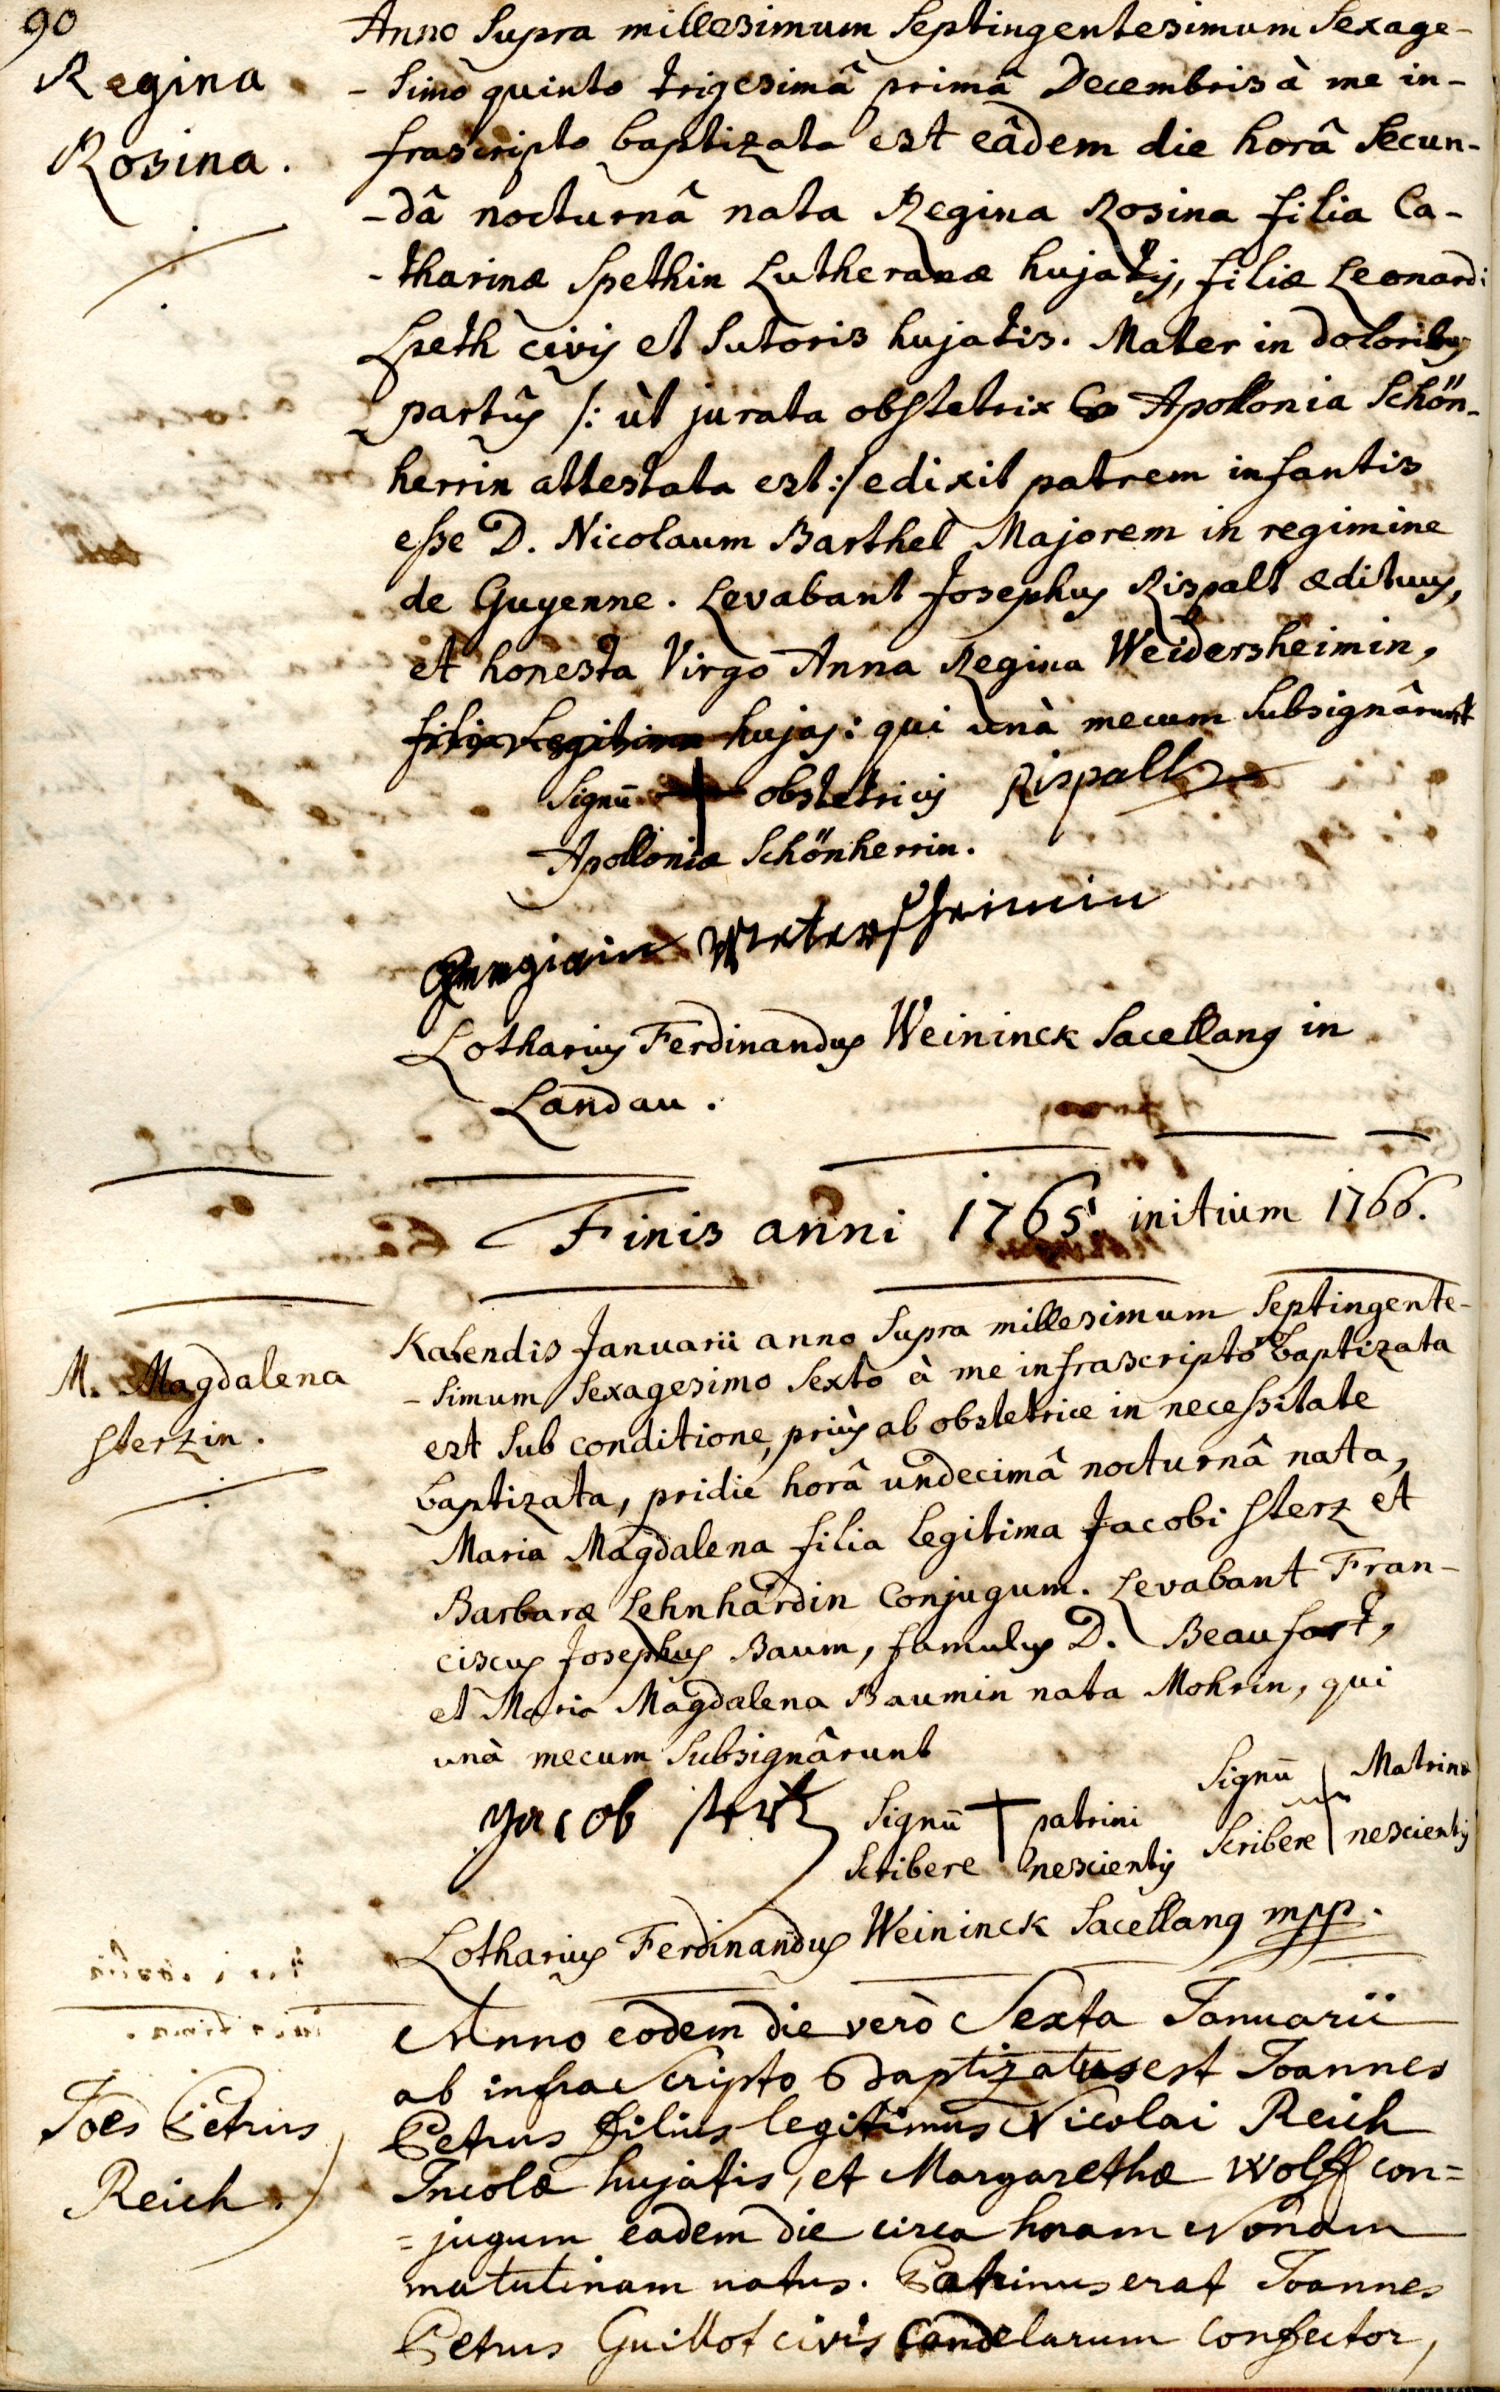 90
Regina
Rosina.
Anno supra millesimum septingentesimum sexage-
-simo quinto trigesimâ primâ Decembris à me in-
frascripto baptizata est eâdem die horâ secun-
-dâ nocturnâ nata Regina Rosina filia Ca-
-tharinæ Spethin Lutheranæ hujatis, filiæ Leonardi
Speth civis et sutoris hujatis. Mater in doloribus
partûs /: ùt jurata obstetrix Apollonia Schön-
herrin attestata est :/ edixit patrem infantis
esse D. Nicolaum Barthel Majorem in regimine
de Guyenne. Levabant Josephus Rispalt ædituus,
et honesta Virgo Anna Regina Weidersheimin,
filia legitima hujas: qui unà mecum subsignârunt
Signū obstetricis Rispalt
Apolloniæ Schönherrin.
Lotharius Ferdinandus Weininck Sacellanus in
Landau.
Finis anni 1765 initium 1766.
M. Magdalena
Sterzin.
Kalendis Januarii anno supra millesimum septingente-
-simum sexagesimo sexto à me infrascripto baptizata
est sub conditione, priùs ab obstetrice in necessitate
baptizata, pridie horâ undecimâ nocturnâ nata,
Maria Magdalena filia legitima Jacobi Sterz et
Barbaræ Lehnhardin conjugum. Levabant Fran-
ciscus Josephus Baum, famulus D. Beaufort,
et Maria Magdalena Baumin nata Mohrin, qui
unà mecum subsignârunt
Yacob Stertz
Signū patrini
scribere nescientis
Signū Matrinæ
scribere nescientis
Lotharius Ferdinandus Weininck Sacellanus mpp.
Joes Petrus
Reich.
Anno eodem die verò Sexta Januarii
ab infrascripto baptizatus est Joannes
Petrus filius legitimus Nicolai Reich
Incolæ hujatis, et Margarethæ Wolff con=
=jugum eadem die circa horam nonam
matutinam natus. Patrinus erat Joannes
Petrus Guillot civis candelarum confector,